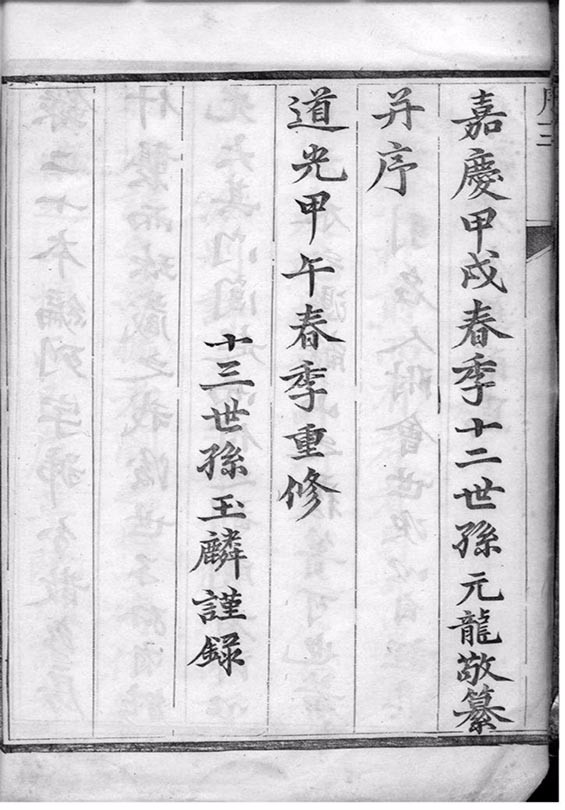 嘉慶甲戌春季十二世孫元龍敬纂
并序
道光甲午春季重修
十三世孫玉麟謹錄